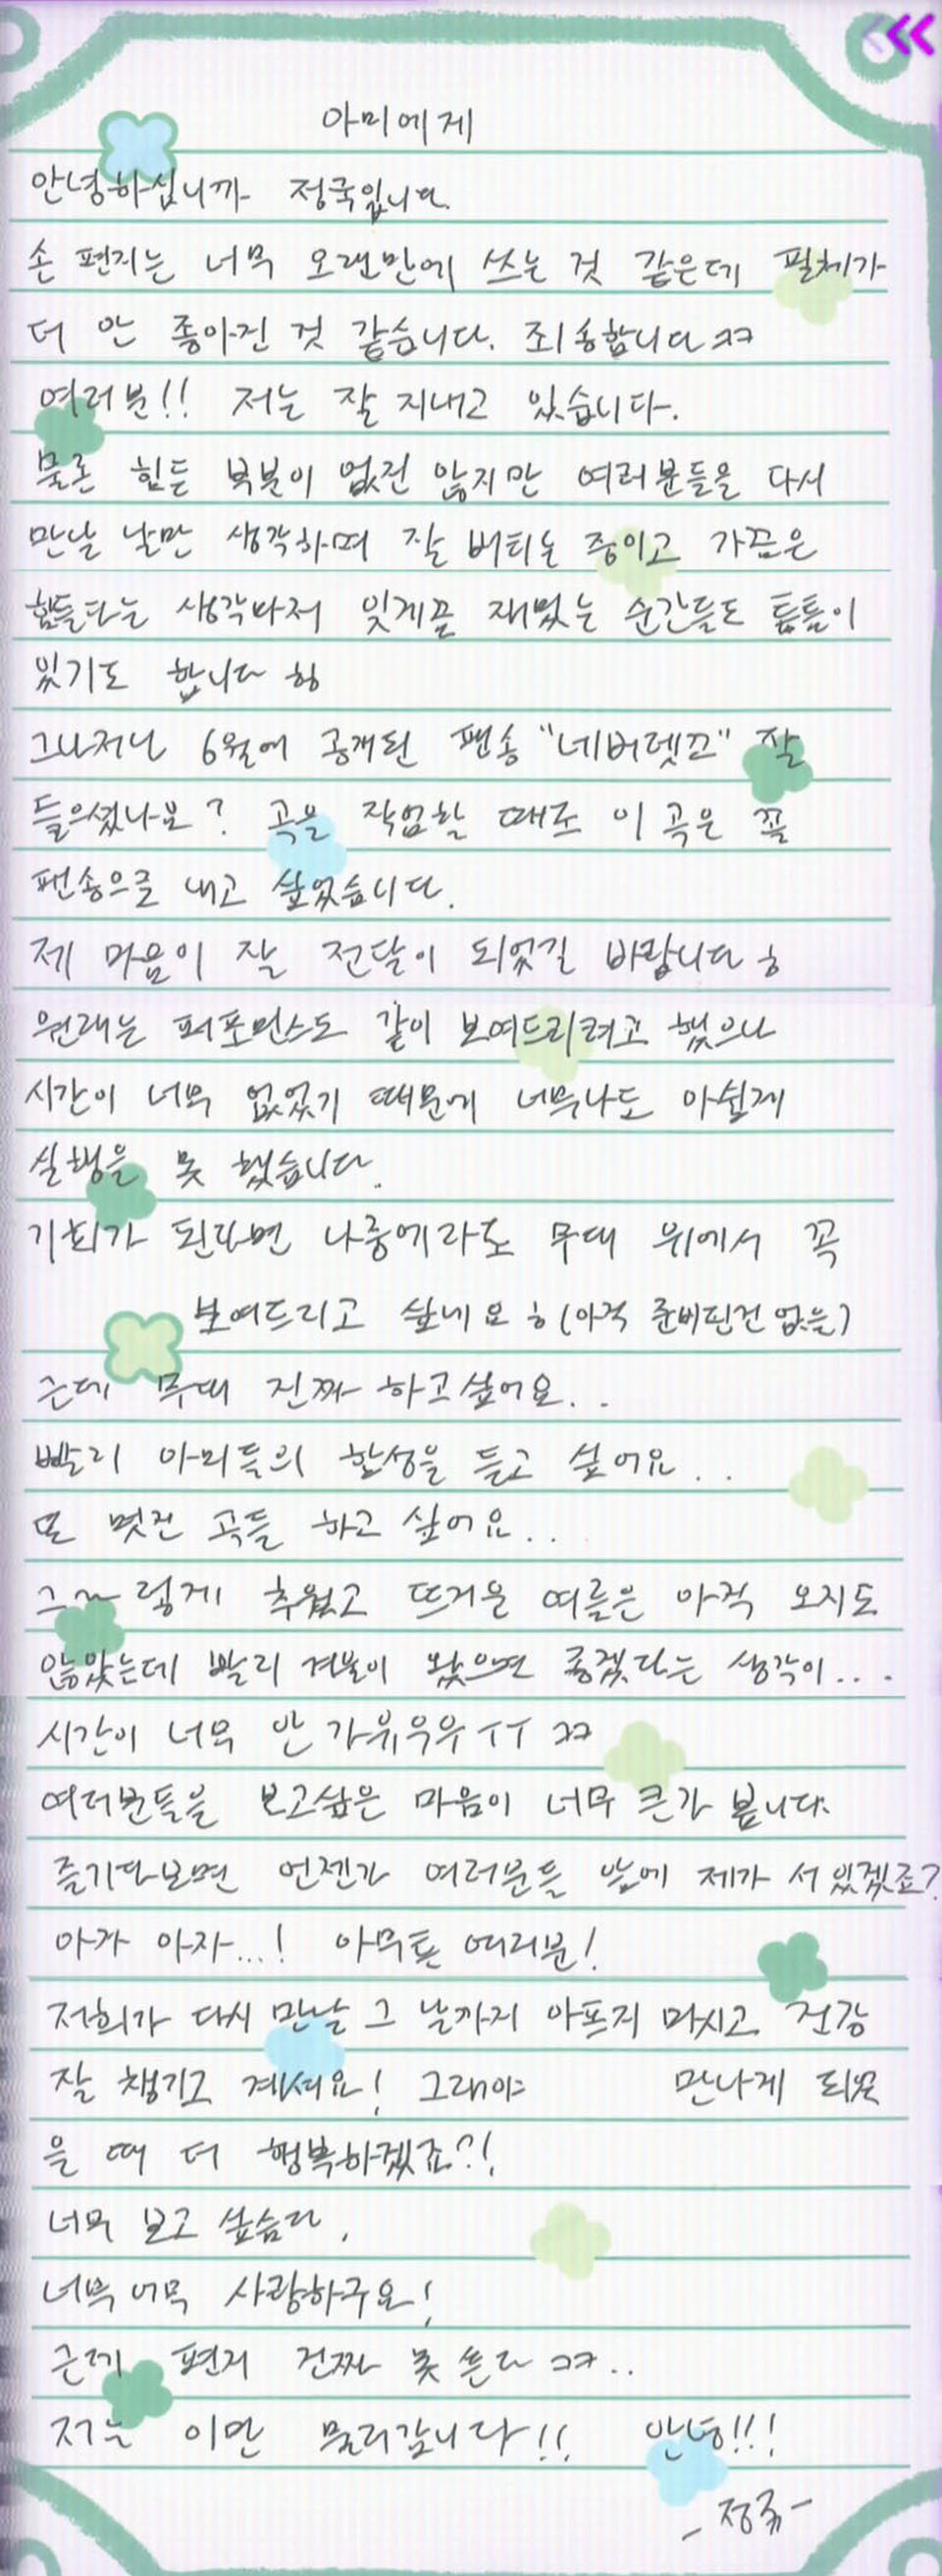 아미에게
안녕하십니까 정국입니다.
손 편지는 너무 오랜만에 쓰는 것 같은데 필체가
더 안 좋아진 것 같습니다. 죄송합니다ㅋㅋ
여러분!! 저는 잘 지내고 있습니다.
물론 힘든 부분이 없진 않지만 여러분들을 다시
만날 날만 생각하며 잘 버티는 중이고 가끔은
힘들다는 생각마저 잊게끔 재밌는 순간들도 틈틈이
있기도 합니다 힣
그나저나 6월에 공개된 팬송 "네버렛고" 잘
들으셨나요? 곡을 작업할 때도 이 곡은 꼭
팬송으로 내고 싶었습니다.
제 마음이 잘 전달이 되었길 바랍니다ㅎ
원래는 퍼포먼스도 같이 보여드리려고 했으나
시간이 너무 없었기 때문에 너무나도 아쉽게
실행을 못 했습니다.
기회가 된다면 나중에라도 무대 위에서 꼭
보여드리고 싶네요ㅎ(아직 준비된건 없음)
근데 무대 진짜 하고싶어요..
빨리 아미들의 함성을 듣고 싶어요..
또 멋진 곡들 하고 싶어요..
그~렇게 추웠고 뜨거운 여름은 아직 오지도
않았는데 빨리 겨울이 왔으면 좋겠다는 생각이...
시간이 너무 안 가유우우ㅜㅜ ㅋㅋ
여러분들을 보고싶은 마음이 너무 큰가 봅니다.
즐기다보면 언젠가 여러분들 앞에 제가 서있겠죠?
아자 아자...! 아무튼 여러분!
저희가 다시 만날 그 날까지 아프지 마시고 건강
잘 챙기고 계셔요! 그래야 만나게 되었
을 때 더 행복하겠죠?!
너무 보고 싶슴다.
너무너무 사랑하구요!
근데 편지 진짜 못 쓴다ㅋㅋ..
저는 이만 물러갑니다!! 안녕!!!
-정국-